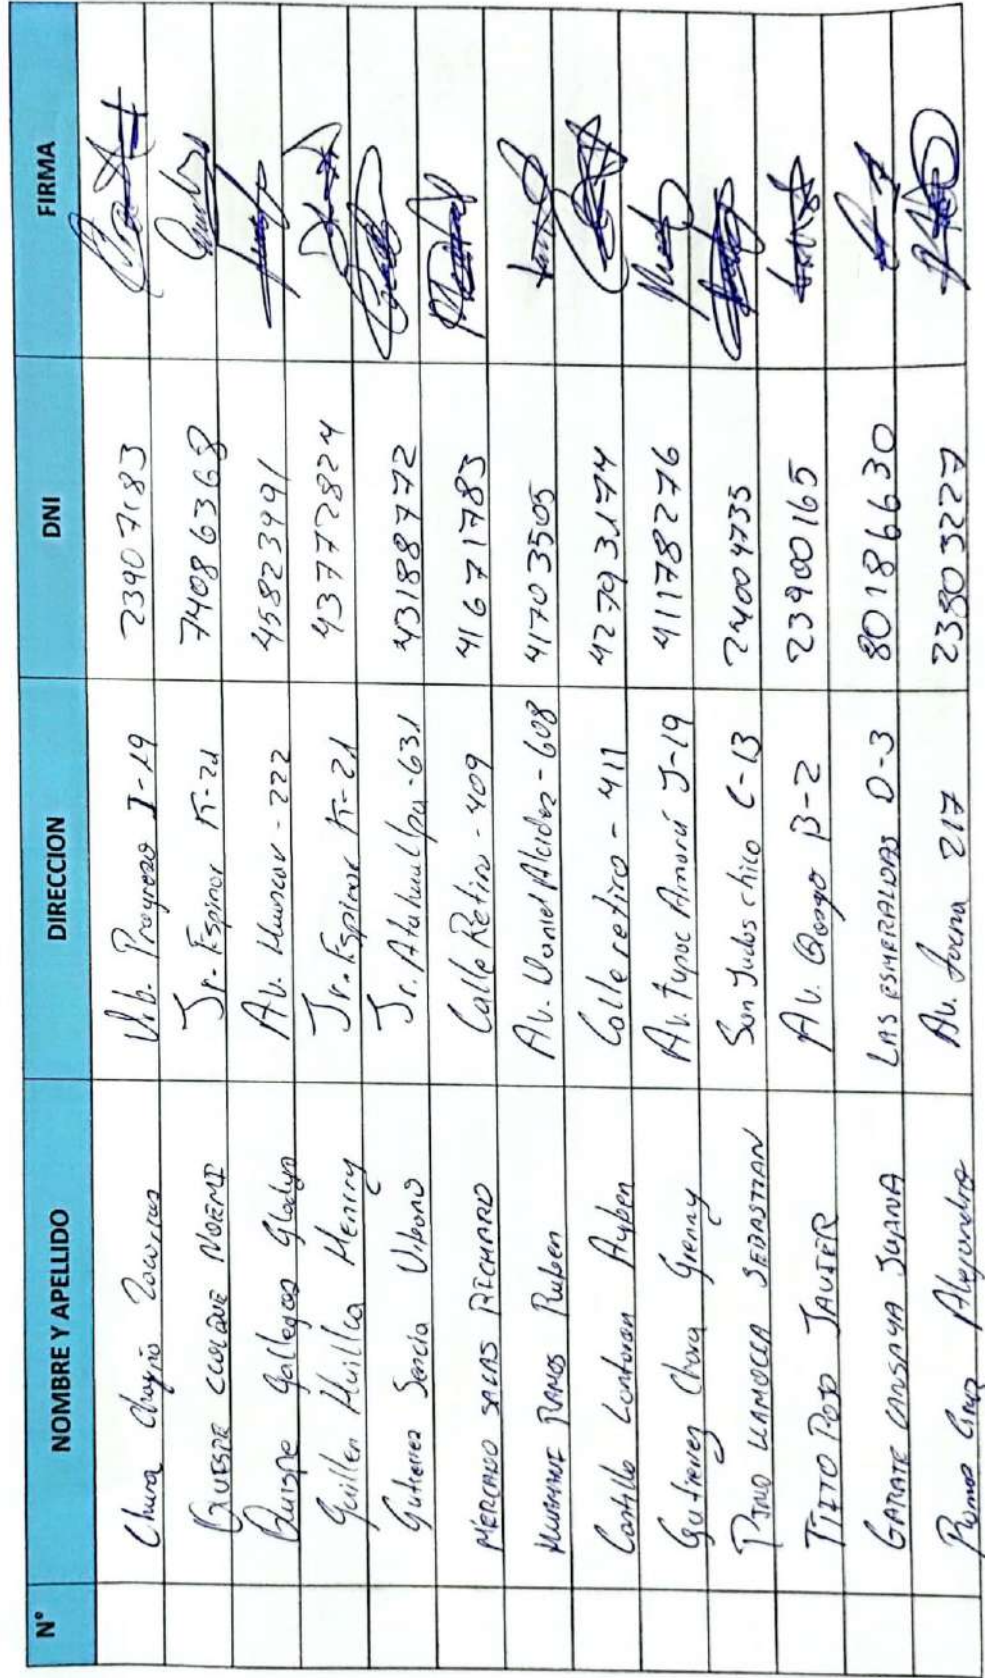 N° NOMBRE Y APELLIDO DIRECCION DNI FIRMA
Chura Urb. Progreso I-19 23907183
QUISPE CCOLQUE NOEMI Jr. Espinar K-21 74086368
Quispe Gallegos Gladys Av. Huascar - 222 45823991
Guillen Huillca Henrry Jr. Espinar K-21 43772824
Gutierrez Jr. Atahualpa - 631 43188772
MERCADO SALAS RICHARD Calle Retiro - 409 41671783
HUAMANI RAMOS Ruben Av. Daniel Alcides - 608 41703505
Castillo Calle retiro - 411 42793174
Gutierrez Chara Grenny Av. Tupac Amaru J-19 41178276
PINO LLAMOCCA SEBASTIAN San Judas chico C-13 24004735
TITTO JAVIER Av. Qosqo B-2 23900165
GARATE CANSAYA JUANA LAS ESMERALDAS D-3 80186630
Alejandro Av. 217 23803227